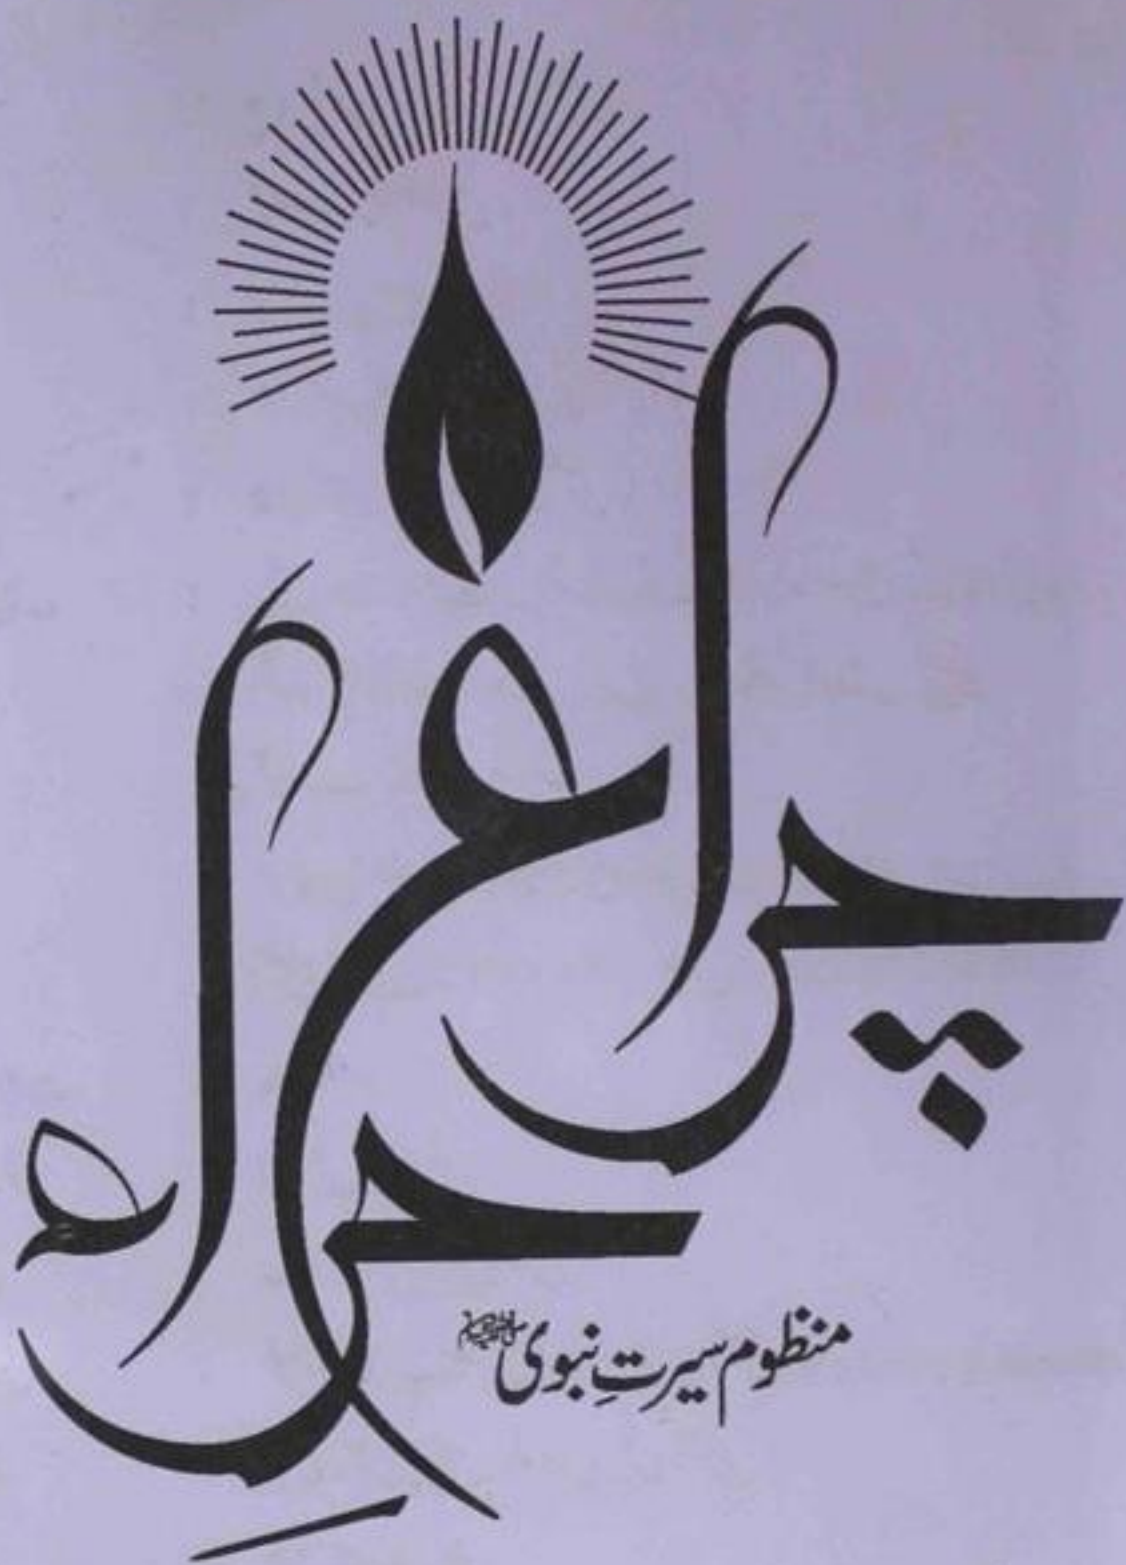 چراغِ حراء
منظوم سیرتِ نبوی ﷺ